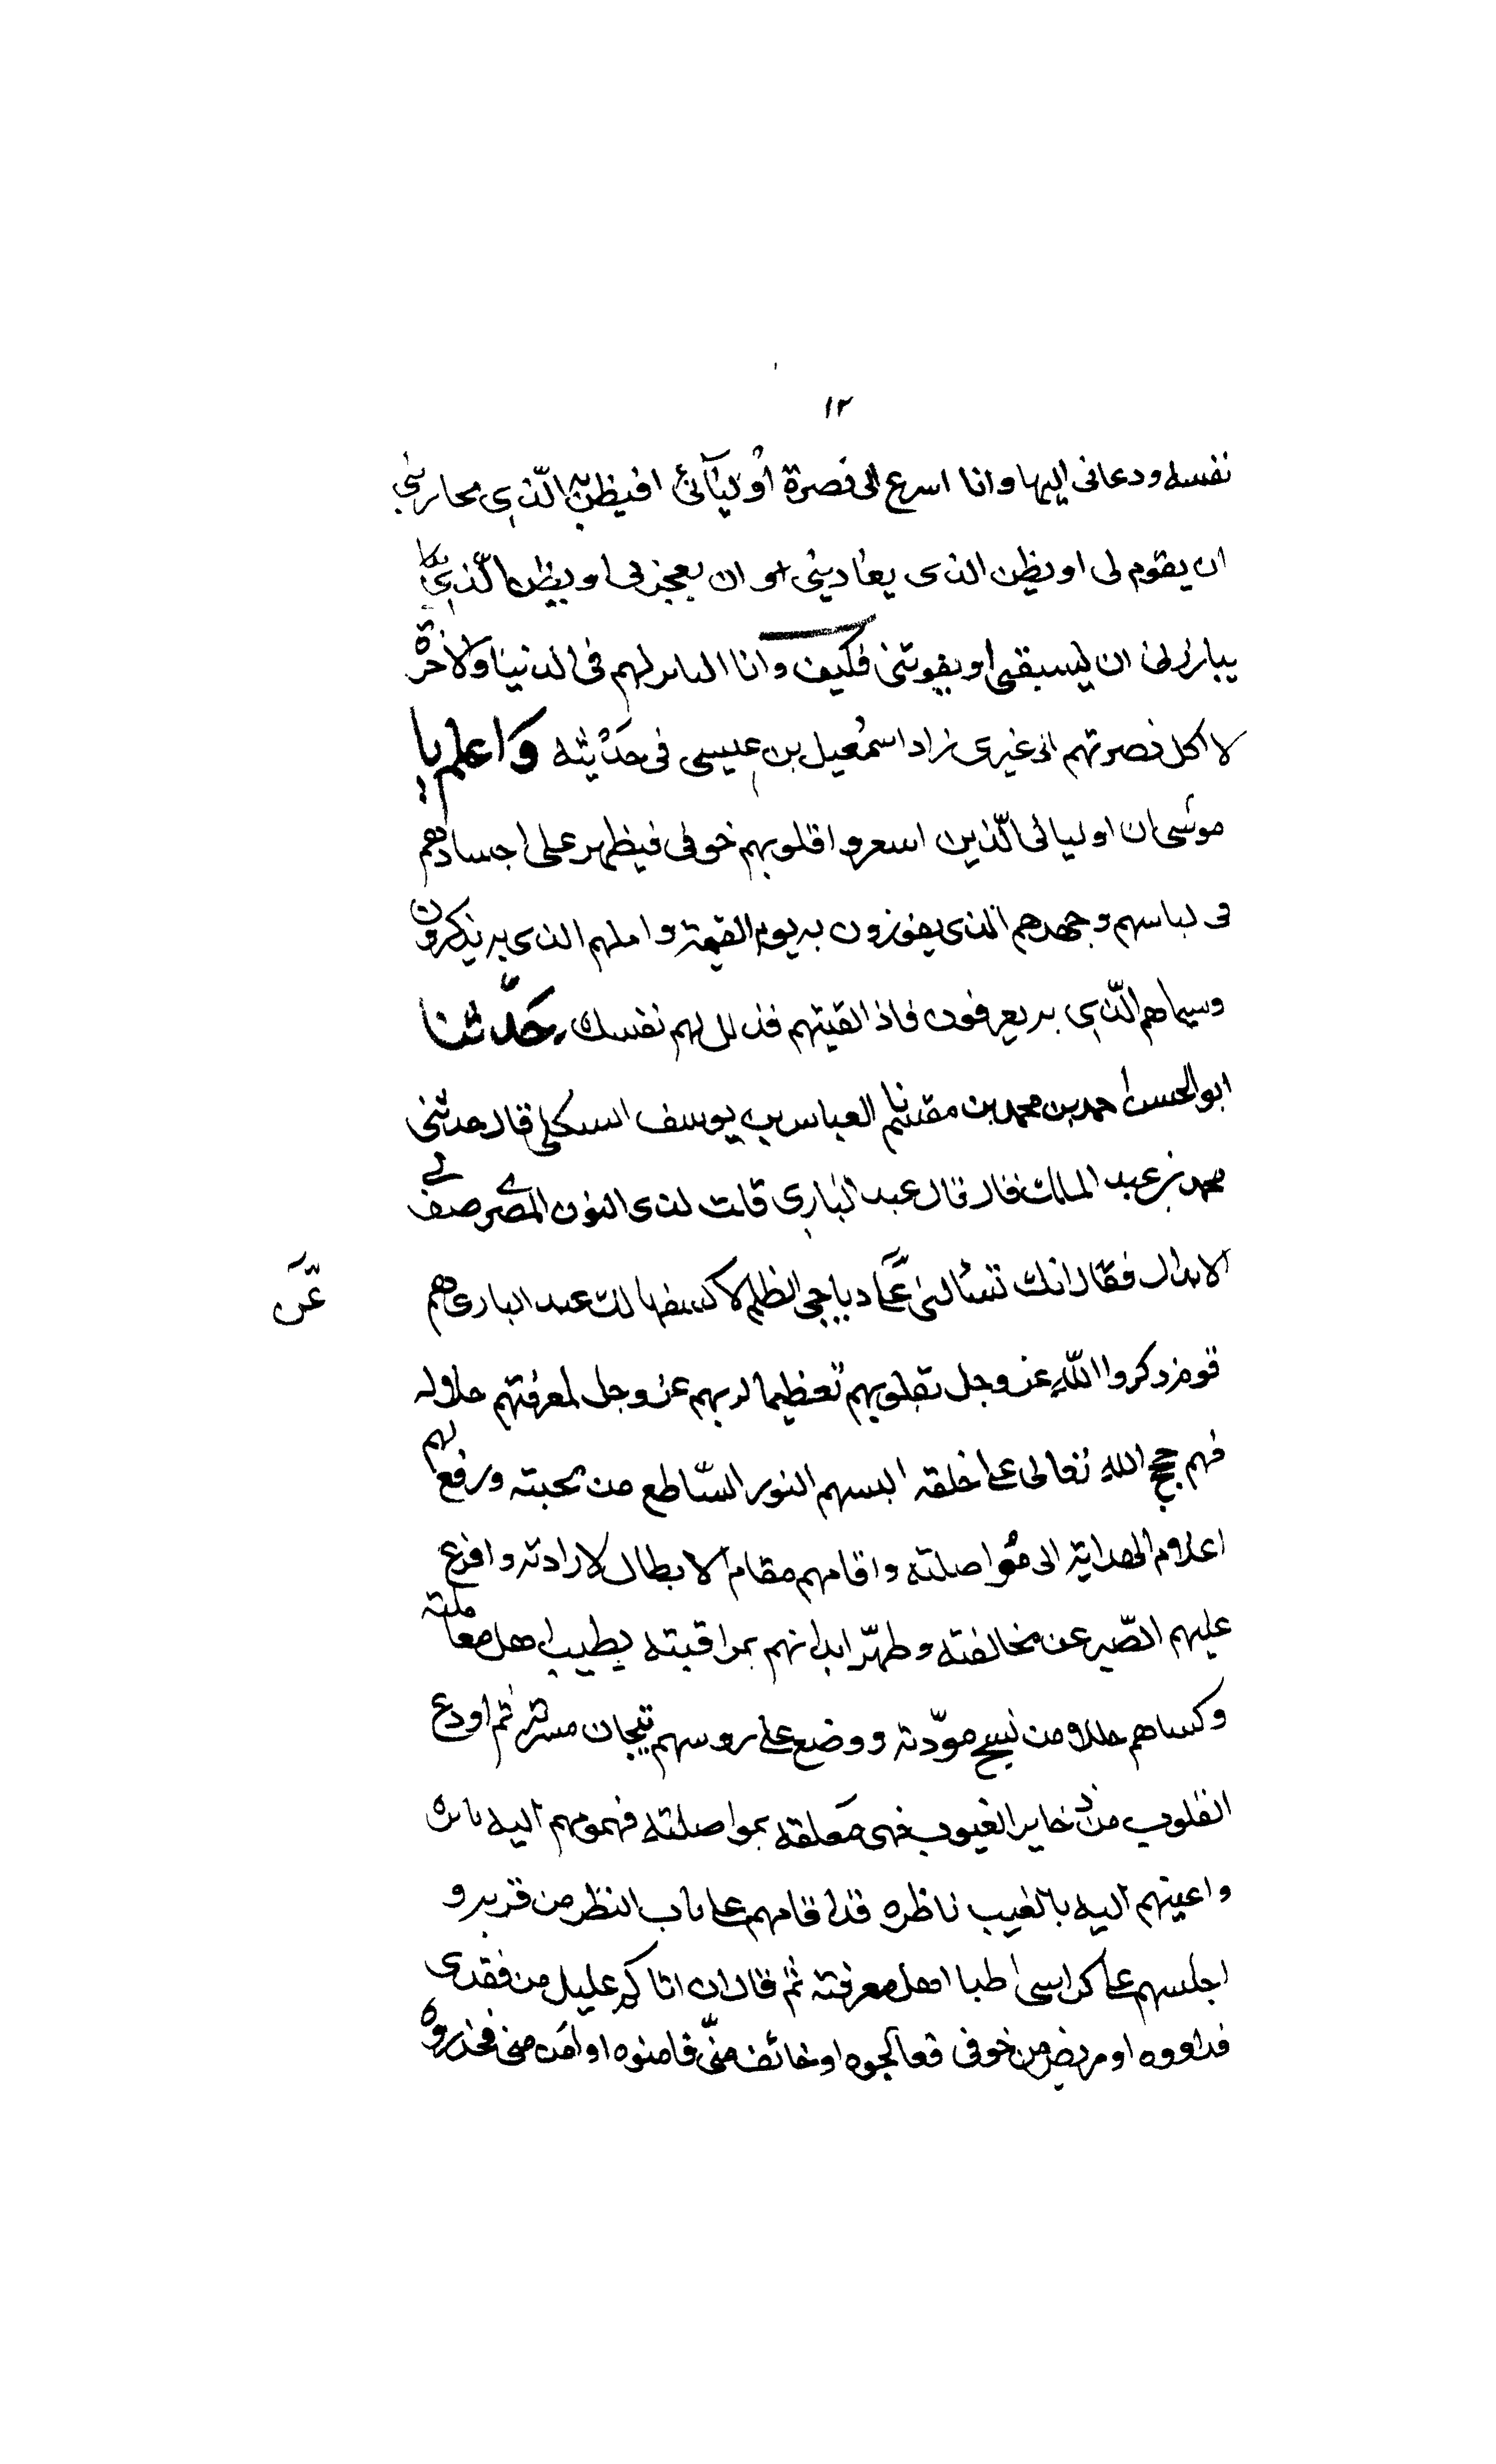 ١٢
نفسه ودعانى اليها وانا اسرع الى نصرة أوليآئى افيظن الّذى محاربنى
ان يقوم لى او يظن الذى يعادينى او ان يعجزنى او يظن الّذى
يبارزنى ان يسبقنى او يفوتنى فكيف وانا الثائر لهم فى الدنيا والاخرة
لا اكل نصرتهم الى غيرى زاد اسمعيل بن عيسى فى حديثه واعلم يا
موسى ان اوليائى الّذين اسعروا قلوبهم خوفى فيظهر على اجسادهم
فى لباسهم وجهدهم الذى يفوزون به يوم القيمة واملهم الذى به يذكرون
وسيماهم الّذى به يعرفون فاذا لقيتهم فذلل لهم نفسك حدّثنا
ابو الحسن احمد بن محمد بن مقسم العباس بن يوسف السكلى قال حدثنى
محمد بن عبد الملك قال قال عبد البارى قلت لذى النون المصرى صف لى
الابدال فقال انك تسألنى عن دياجى الظلم لاكشفها لك عبد البارى هم
عّن
قوم ذكروا اللّه عز وجل بقلوبهم تعظيما لربهم عز وجل لمعرفتهم جلاله
فهم حجج الله تعالى على خلقه البسهم النور السّاطع من محبته ورفع لهم
اعلام الهداية الى مواصلته واقامهم مقام الابطال لارادته وافرغ
عليهم الصّبر عن مخالفته وطهّر ابدانهم بمراقبته بطيب اهل معاملته
وكساهم حللا من نسج مودّته ووضع على روسهم تيجان مسرته ثم اودع
القلوب من ذخاير الغيوب فهى معلقه بمواصلته فهمومهم اليه ثائره
واعينهم اليه بالغيب ناظره قد اقامهم على باب النظر من قربه و
اجلسهم على كراسى اطبا اهل معرفته ثم قال ان اتاكم عليل من فقدى
فداووه او مريض من خوفى فعالجوه او خائف منّى فامنوه او امن منى فحذروه